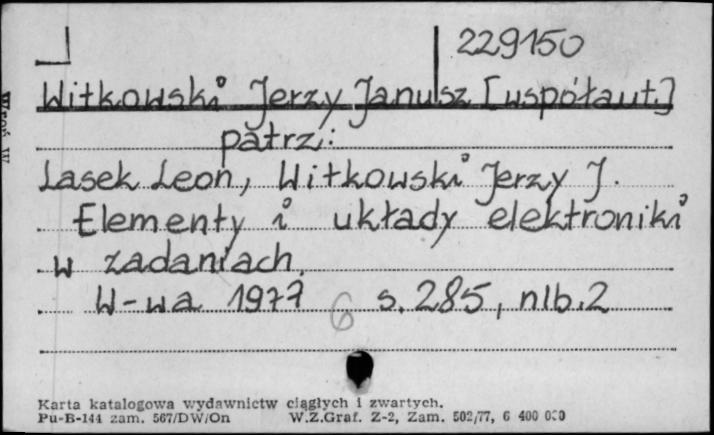 229150
Witkowski Jerzy Janusz [współaut.]
patrz:
Lasek Leon, Witkowski Jerzy J.
Elementy i układy elektroniki
w zadaniach.
W-wa 1977 6 s. 285, nlb. 2
Karta katalogowa wydawnictw ciągłych i zwartych.
Pu-B-144 zam. 567/DW/On W.Z.Graf. Z-2, Zam. 502/77, 6 400 000